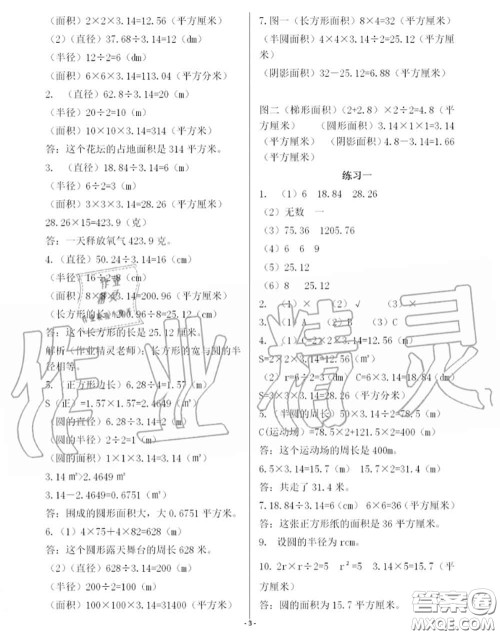 （面积）2×2×3.14=12.56（平方厘米）
（2）（直径）37.68÷3.14=12（dm）
（半径）12÷2=6（dm）
（面积）6×6×3.14=113.04（平方分米）
2. （直径）62.8÷3.14=20（m）
（半径）20÷2=10（m）
（面积）10×10×3.14=314（平方米）
答：这个花坛的占地面积是 314 平方米。
3. （直径）18.84÷3.14=6（m）
（半径）6÷2=3（m）
（面积）3×3×3.14=28.26（平方米）
28.26×15=423.9（克）
答：一天释放氧气 423.9 克。
4.（直径）50.24÷3.14=16（cm）
（半径）16÷2=8（cm）
（面积）8×8×3.14=200.96（平方厘米）
（长方形的长）200.96÷8=25.12（厘米）
答：这个长方形的长是 25.12 厘米。
解析（作业精灵老师）：长方形的宽与圆的半
径相等。
5. （正方形边长）6.28÷4=1.57（m）
S（正）=1.57×1.57=2.4649（㎡）
（圆的直径）6.28÷3.14=2（m）
（圆的半径）2÷2=1（m）
（圆的面积）1×1×3.14=3.14（㎡）
3.14 ㎡>2.4649 ㎡
3.14－2.4649=0.6751（㎡）
答：围成的圆形面积大，大 0.6751 平方米。
6.（1）4×75+4×82=628（m）
答：这个圆形露天舞台的周长 628 米。
（2）（直径）628÷3.14=200（m）
（半径）200÷2=100（m）
（面积）100×100×3.14=31400（平方米）
7.图一（长方形面积）8×4=32（平方厘米）
（半圆面积）4×4×3.14÷2=25.12（平方厘米）
（阴影面积）32－25.12=6.88（平方厘米）
图二（梯形面积）（2+2.8）×2÷2=4.8（平
方厘米） （圆形面积）3.14×1×1=3.14
（平方厘米）（阴影面积）4.8－3.14=1.66
（平方厘米）
练习一
1. （1）6 18.84 28.26
（2）无数 一
（3）75.36 1205.76
（4）6 6 9
（5）25.12
（6）8 25.12
2. （1）× （2）√ （3）×
3. （1）A （2）B （3）
4. （1）C=2×2×3.14=12.56（cm）
S=2×2×3.14=12.56（平方厘米）
（2）r=6÷2=3（cm）C=6×3.14=18.84（cm）
S=3×3×3.14=28.26（平方厘米）
5. （半圆的周长）50×3.14÷2=78.5（m）
C(运动场)=78.5×2+121.5×2=400（m）
答：这个运动场的周长是 400m。
6.5×3.14=15.7（m） 15.7×2=31.4（m）
答：共走了 31.4 米。
7.18.84÷3.14=6（cm） 6×6=36（平方厘米）
答：这张正方形纸的面积是 36 平方厘米。
9. 设圆的半径为 rcm。
10. 2r×r÷2=5 r²=5 3.14×5=15.7（平
方厘米）
答：圆的面积为 15.7 平方厘米。
- 3 -
作业精灵
答案圈
MXQE.COM